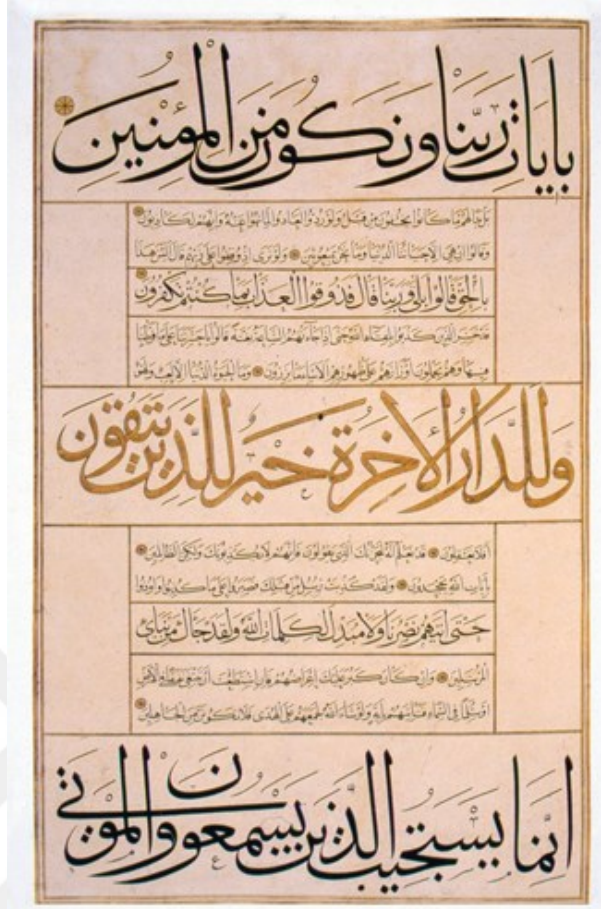 بِاٰيَاتِ رَبِّنَا وَنَكُونَ مِنَ الْمُؤْمِنِينَ
بل بدا لهم ما كانوا يخفون من قبل ولو ردوا لعادوا لما نهوا عنه وانهم لكاذبون
وقالوا ان هي الا حياتنا الدنيا وما نحن بمبعوثين ولو ترى اذ وقفوا على ربهم قال اليس هذا
بالحق قالوا بلى وربنا قال فذوقوا العذاب بما كنتم تكفرون
قد خسر الذين كذبوا بلقاء الله حتى اذا جاءتهم الساعة بغتة قالوا يا حسرتنا على ما فرطنا
فيها وهم يحملون اوزارهم على ظهورهم الا ساء ما يزرون وما الحيوة الدنيا الا لعب ولهو
وَلَلدَّارُ الْاٰخِرَةُ خَيْرٌ لِلَّذِينَ يَتَّقُونَ
افلا تعقلون قد نعلم انه ليحزنك الذي يقولون فانهم لا يكذبونك ولكن الظالمين
بايات الله يجحدون ولقد كذبت رسل من قبلك فصبروا على ما كذبوا واوذوا
حتى اتيهم نصرنا ولا مبدل لكلمات الله ولقد جاك من نباى
المرسلين وان كان كبر عليك اعراضهم فان استطعت ان تبتغي نفقا في الارض
او سلما في السماء فتاتيهم باية ولو شاء الله لجمعهم على الهدى فلا تكونن من الجاهلين
اِنَّمَا يَسْتَجِيبُ الَّذِينَ يَسْمَعُونَ وَالْمَوْتٰى